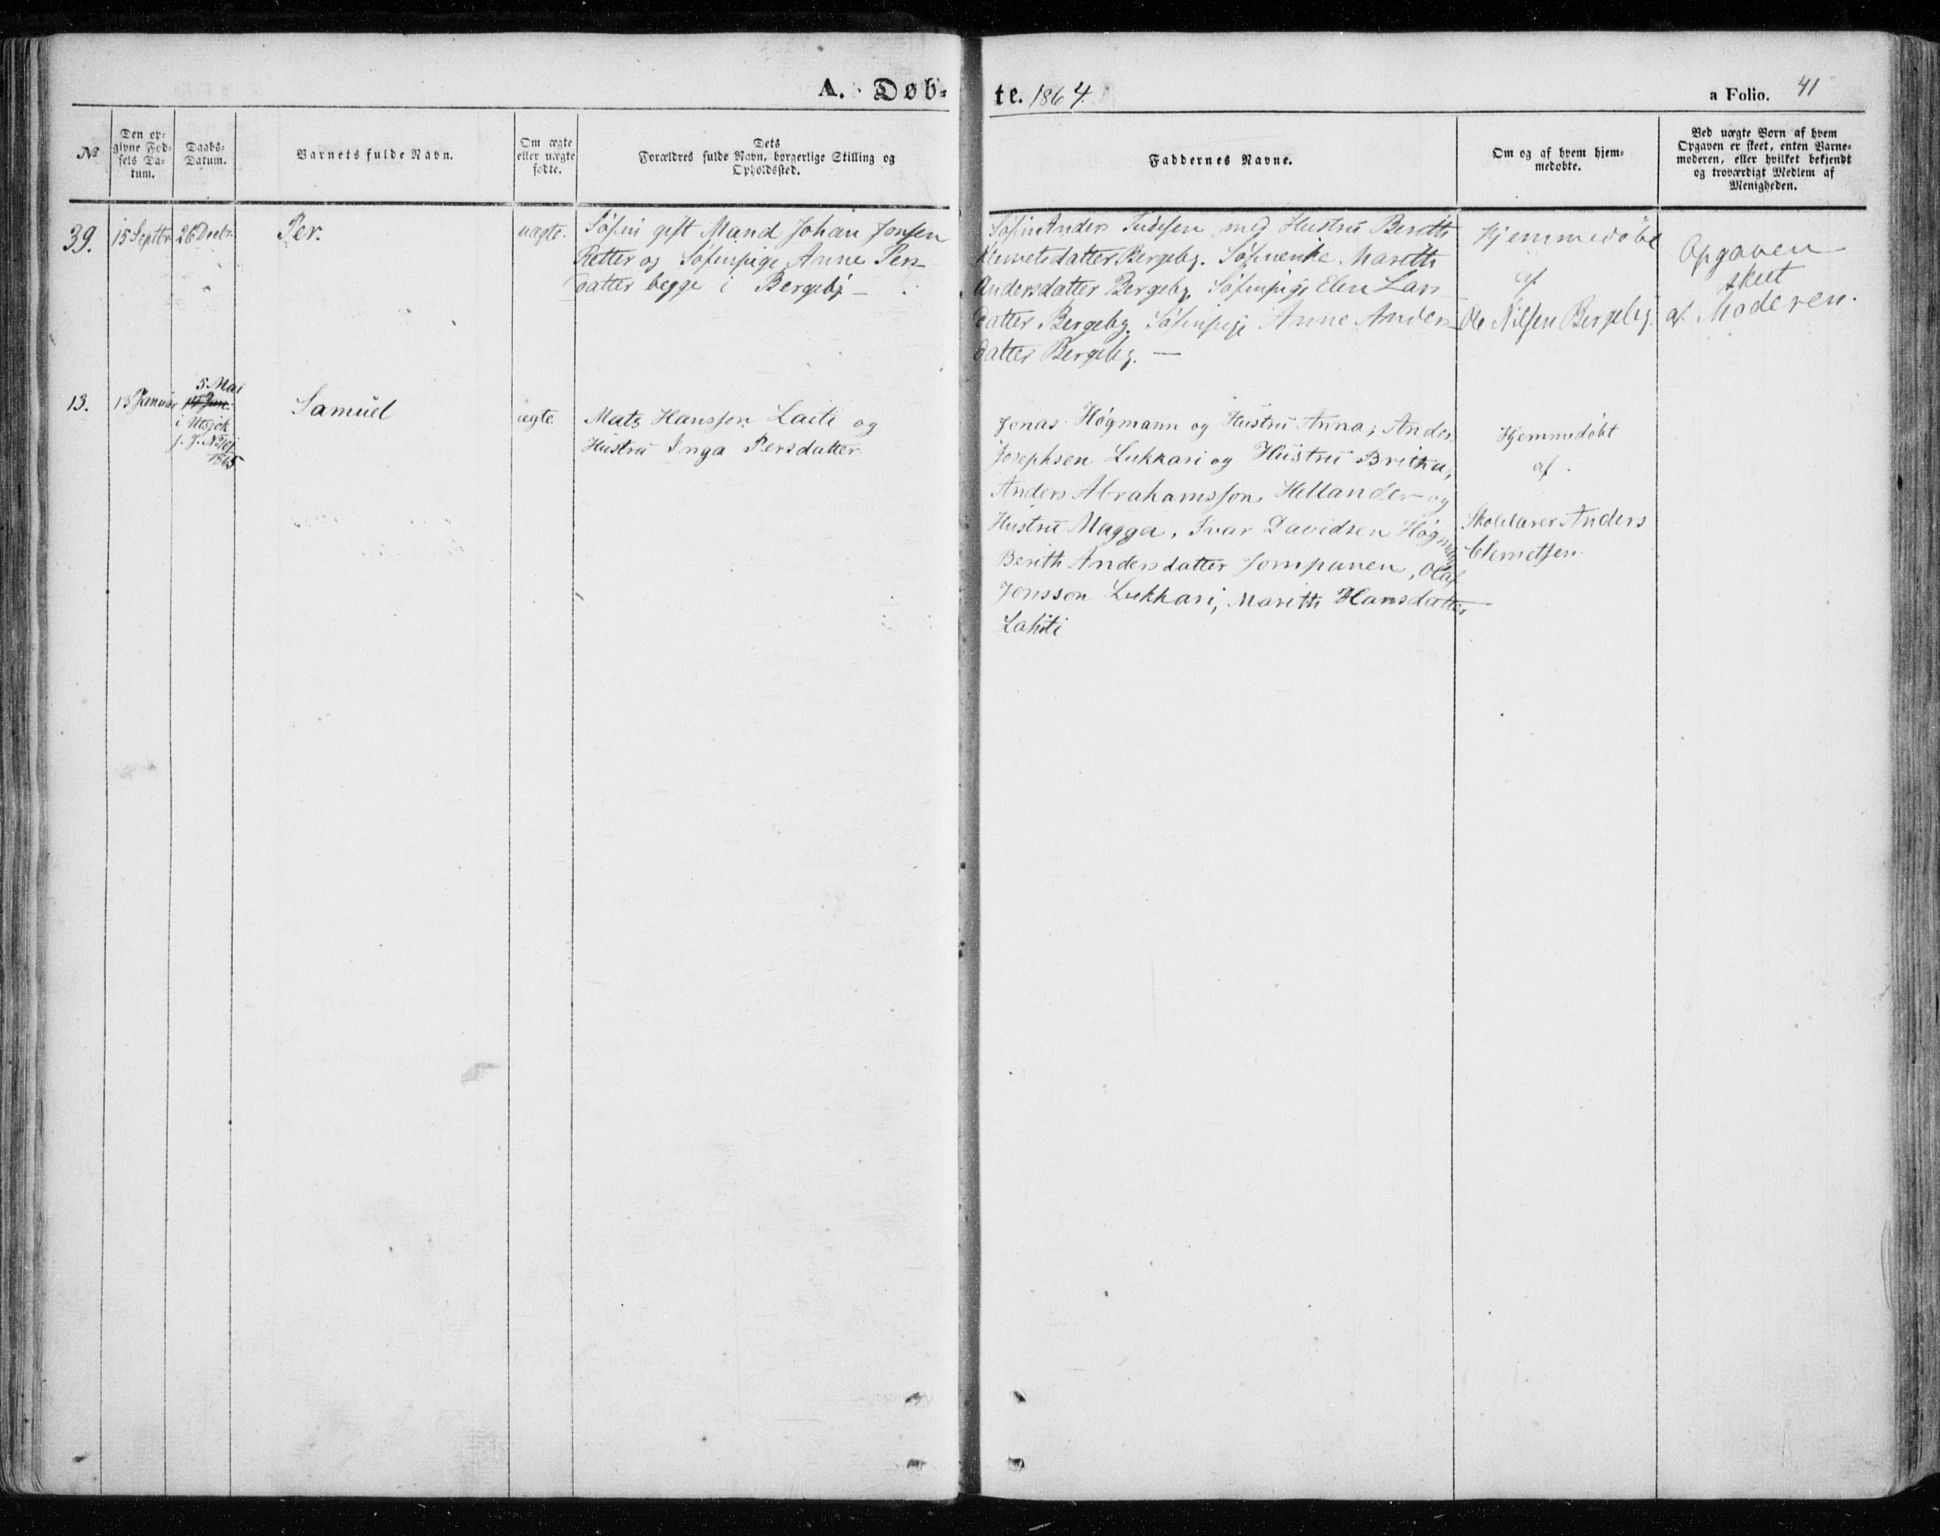 A. Døbte. 1864.
a Folio. 41
No
Den opgivne Fødsels Datum.
Daabs-Datum.
Barnets fulde Navn.
Om ægte eller uægte fødte.
Dets Forældres fulde Navn, borgerlige Stilling og Opholdssted.
Faddernes Navne.
Om og af hvem hjemmedøbte.
Ved uægte Born af hvem Opgaven er skeet, enten Barnemoderen, eller hvilket bekjendt og troværdigt Medlem af Menigheden.
39.
15 Septbr
26 Decbr.
Per.
uægte.
Søfin gift Mand Johan Jonsen
Retter og Søfinpige Anne Pers-
datter begge i Bergeby —
Søfin Anders Tudesen med Hustru Berith
Klemetsdatter Bergeby. Søfinenke Marith
Andersdatter Bergeby, Søfinpige Elen Lars
datter Bergeby. Søfinpige Anne Anders
datter Bergeby. —
Hjemmedøbt
af
Ole Nilsen Bergeby.
Opgaven
skeet
af Moderen.
13.
13 Januar
5 Mai
14 Jan.
i Utsjok
1865
Samuel
ægte
Mats Hansson Laiti og
Hustru Inga Persdatter
Jonas Högmann og Hustru Anna, Anders
Josephsen Lukkari og Hustru Britha,
Anders Abrahamsson Hellander og
Hustru Magga, Ivar Davidsen Högman
Berith Andersdatter Jompanen, Olaf
Jonsson Lukkari, Marith Hansdatter
Lahiti
Hjemmedøbt
af
Skolelærer Anders
Clemetsen